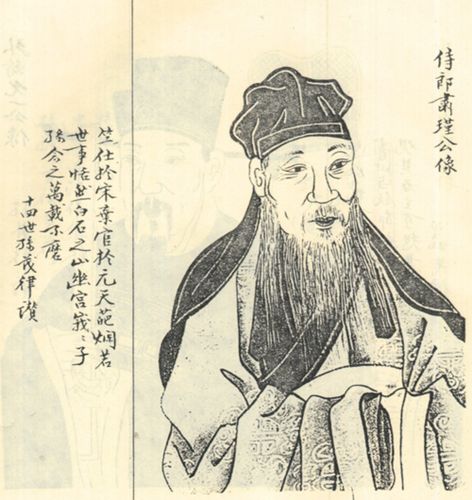 侍郎肅瑾公像
竺仕於宋棄官於元天葩烟若
世事恬然白石之山幽宮峩〻子
孫念之萬載不磨
十四世孫茂律讚